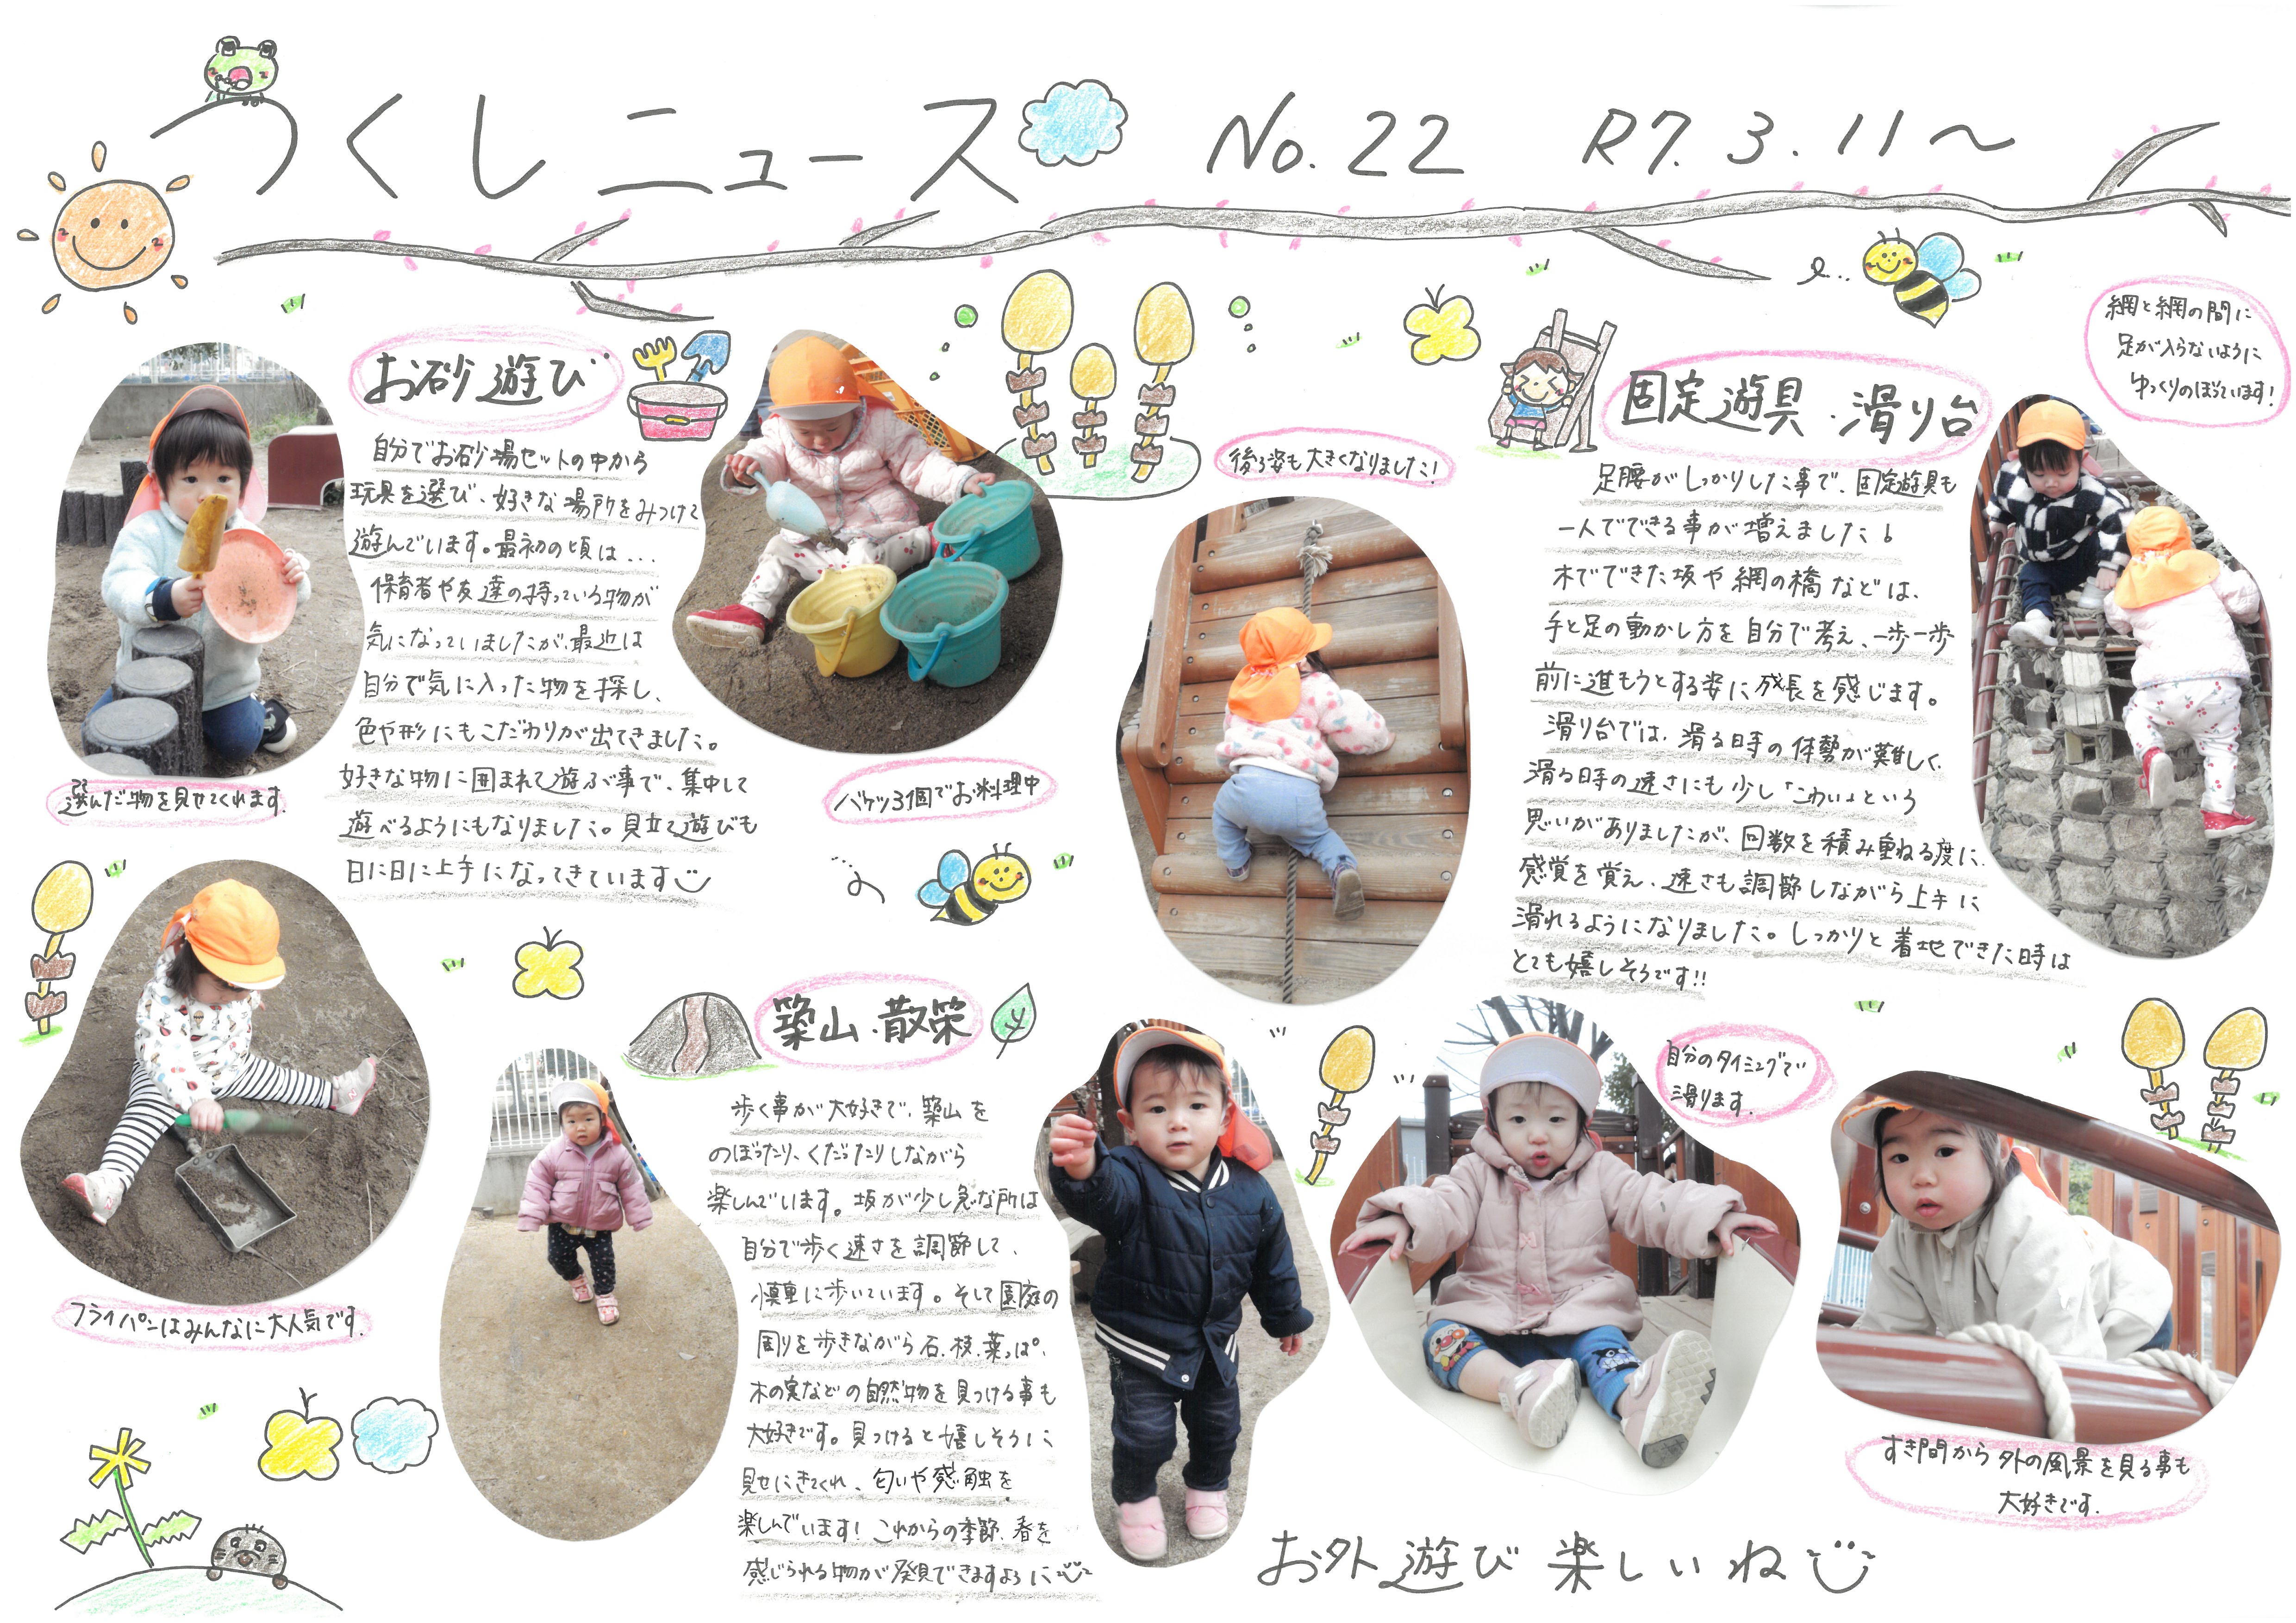 つくしニュース No.22 R7.3.11～
お砂遊び
自分でお砂場セットの中から
玩具を選び、好きな場所をみつけて
遊んでいます。最初の頃は...
保育者や友達の持っている物が
気になっていましたが、最近は
自分で気に入った物を探し、
色や形にもこだわりが出てきました。
好きな物に囲まれて遊ぶ事で、集中して
遊べるようにもなりました。見立て遊びも
日に日に上手になってきています
選んだ物を見せてくれます。
バケツ3個でお料理中
フライパンはみんなに大人気です。
固定遊具・滑り台
足腰がしっかりした事で、固定遊具も
一人でできる事が増えました!
木でできた坂や網の橋などは、
手と足の動かし方を自分で考え、一歩一歩
前に進もうとする姿に成長を感じます。
滑り台では、滑る時の体勢が難しく、
滑る時の速さにも少し「こわい」という
思いがありましたが、回数を積み重ねる度に、
感覚を覚え、速さも調節しながら上手に
滑れるようになりました。しっかりと着地できた時は
とても嬉しそうです!!
後ろ姿も大きくなりました!
網と網の間に
足が入らないように
ゆっくりのぼっています!
築山・散策
歩く事が大好きで、築山を
のぼったり、くだったりしながら
楽しんでいます。坂が少し急な所は
自分で歩く速さを調節して、
慎重に歩いています。そして園庭の
周りを歩きながら石、枝、葉っぱ、
木の実などの自然物を見つける事も
大好きです。見つけると嬉しそうに
見せにきてくれ、匂いや感触を
楽しんでいます!これからの季節、春を
感じられる物が発見できますように
自分のタイミングで
滑ります。
すき間から外の風景を見る事も
大好きです。
お外遊び楽しいね